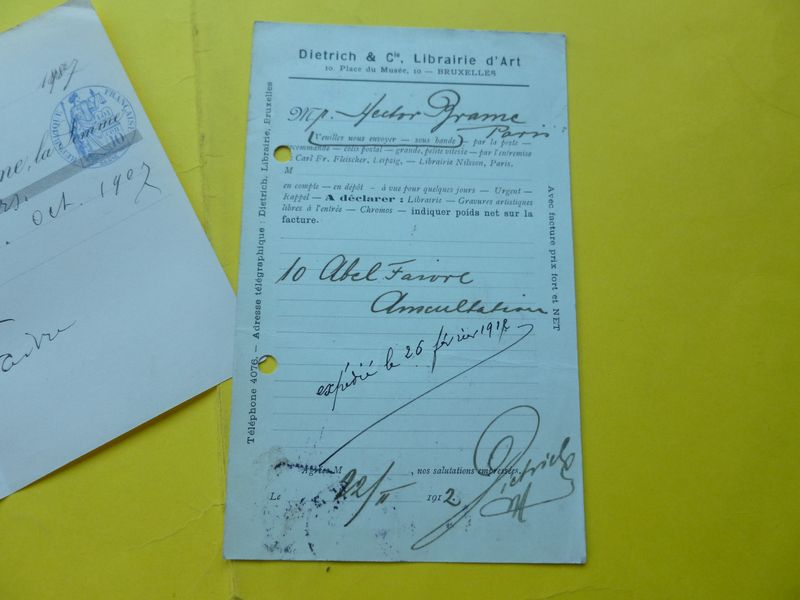 1907
me, la somme
Oct. 1907
Faivre
Dietrich & Cie, Librairie d'Art
10, Place du Musée, 10 — BRUXELLES
Mr. Hector Brame
Paris
Veuillez nous envoyer — sous bande — par la poste —
recommandé — colis postal — grande, petite vitesse — par l'entremise
Carl Fr. Fleischer, Leipzig, — Librairie Nilsson, Paris.
M
en compte — en dépôt — à vue pour quelques jours — Urgent —
Rappel — A déclarer : Librairie — Gravures artistiques
libres à l'entrée — Chromos — indiquer poids net sur la
facture.
10 Abel Faivre
Auscultation
expédié le 26 février 1912
Agréez M , nos salutations empressées.
Le 22/II 1912.
Dietrich
Téléphone 4076. — Adresse télégraphique : Dietrich, Librairie, Bruxelles
Avec facture prix fort et NET